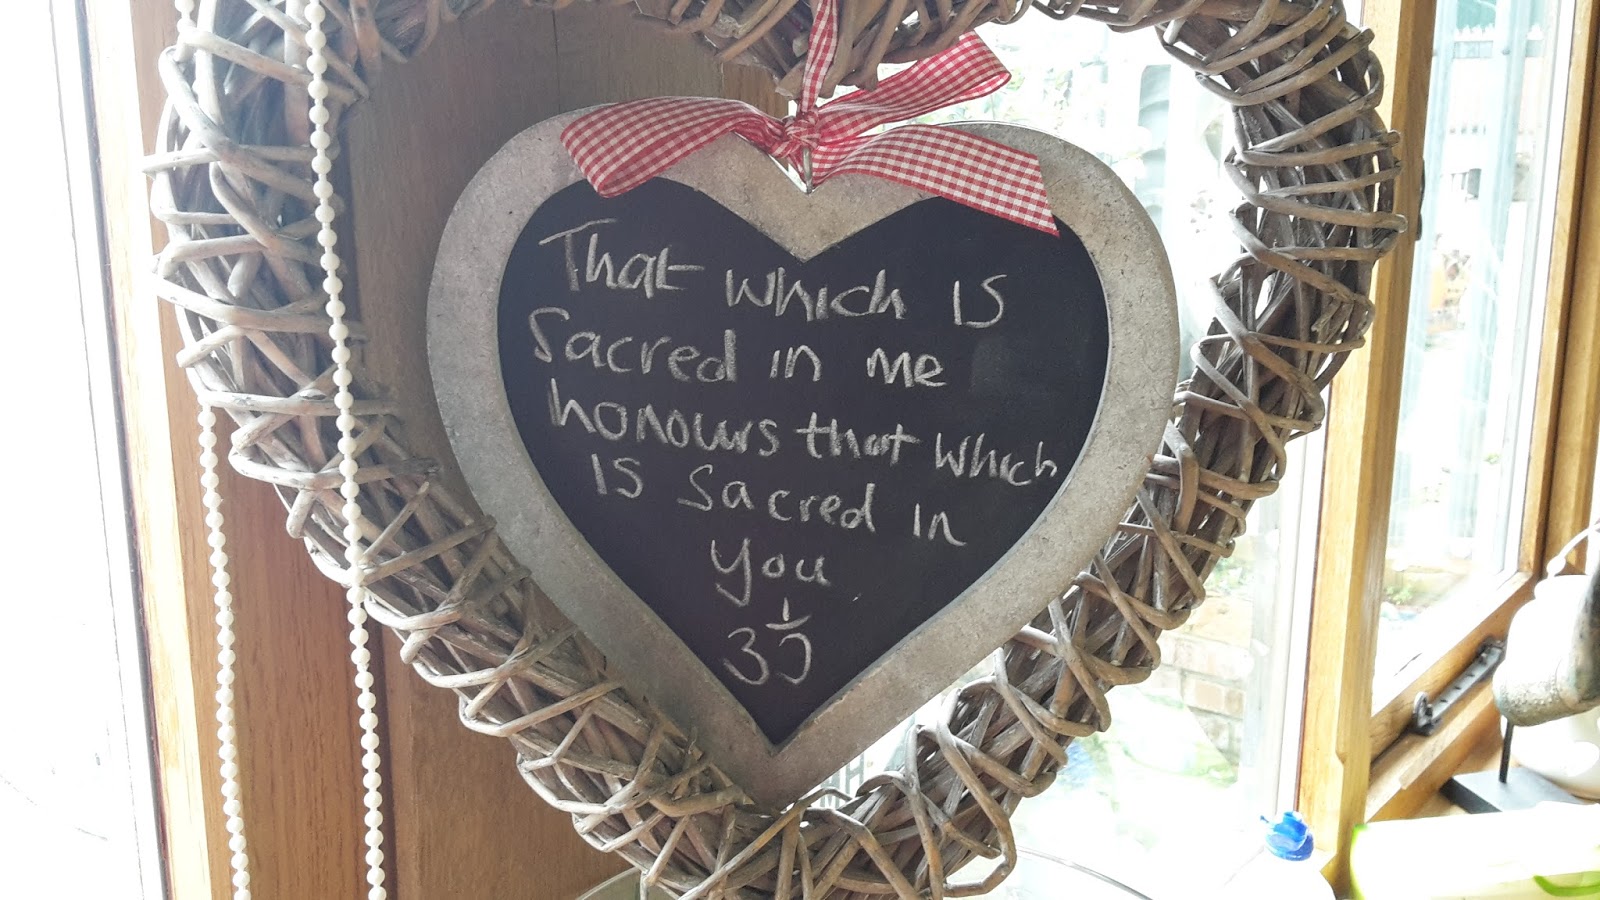 That which is
Sacred in me
honours that which
is Sacred in
you
ॐ